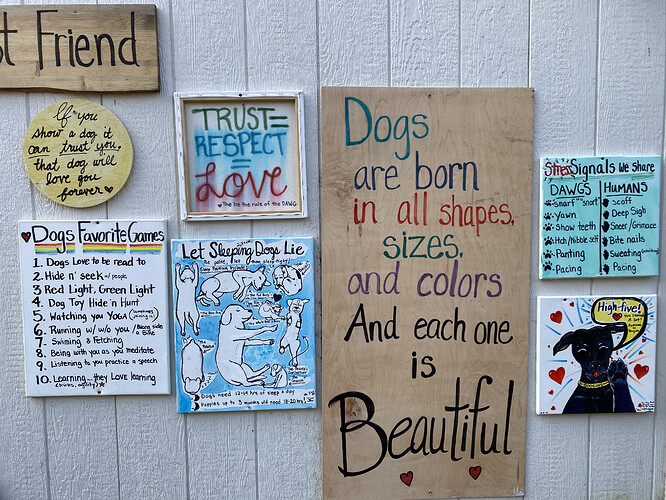 t Friend
If you
show a dog it
can trust you,
that dog will
love you
forever
TRUST=
RESPECT
=
Love
The be the rule of the DAWG
Dogs Favorite Games
1. Dogs Love to be read to
2. Hide n' seek w/ people
3. Red Light, Green Light
4. Dog Toy Hide n Hunt
5. Watching you YOGA
6. Running w/ you / Along side a Bike
7. Swiming & Fetching
8. Being with you as you meditate
9. Listening to you practice a speech
10. Learning... they Love learning
Let Sleeping Dogs Lie
Be polite, let them sleep tight!
Sleep Positions Include:
Dogs need 12-14 hrs of sleep a day
Puppies up to 3 months old need 18-20 hrs
Dogs
are born
in all shapes,
sizes,
and colors
And each one
is
Beautiful
Stress Signals We Share
DAWGS HUMANS
Snarf "snort" Scoff
Yawn Deep Sigh
Show teeth Sneer/Grimace
Itch/Nibble self Bite nails
Panting Sweating
Pacing Pacing
High-five!